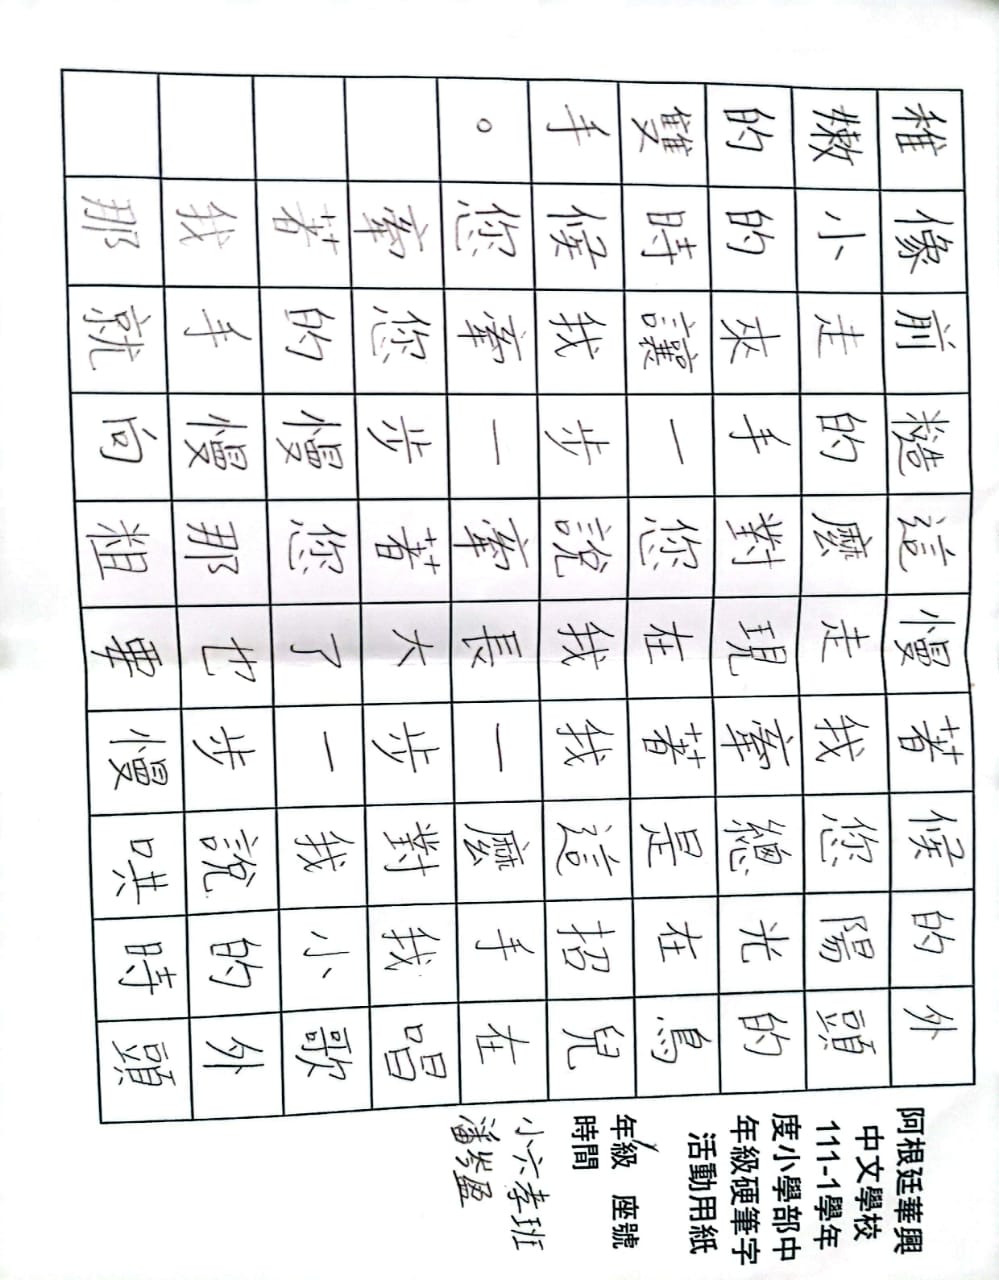 阿根廷華興
中文學校
111-1學年
度小學部中
年級硬筆字
活動用紙
年級 座號
時間
小六孝班
潘岑盈
外頭的鳥兒在唱歌外頭
的陽光在招手我小的時
候您總是這麼對我說哄
著我牽著我一步一步慢
慢走現在我長大了也要
這麼對您說牽著您那粗
糙的手一步一步慢慢向
前走來讓我牽您的手就
像小的時候您牽著我那
稚嫩的雙手。